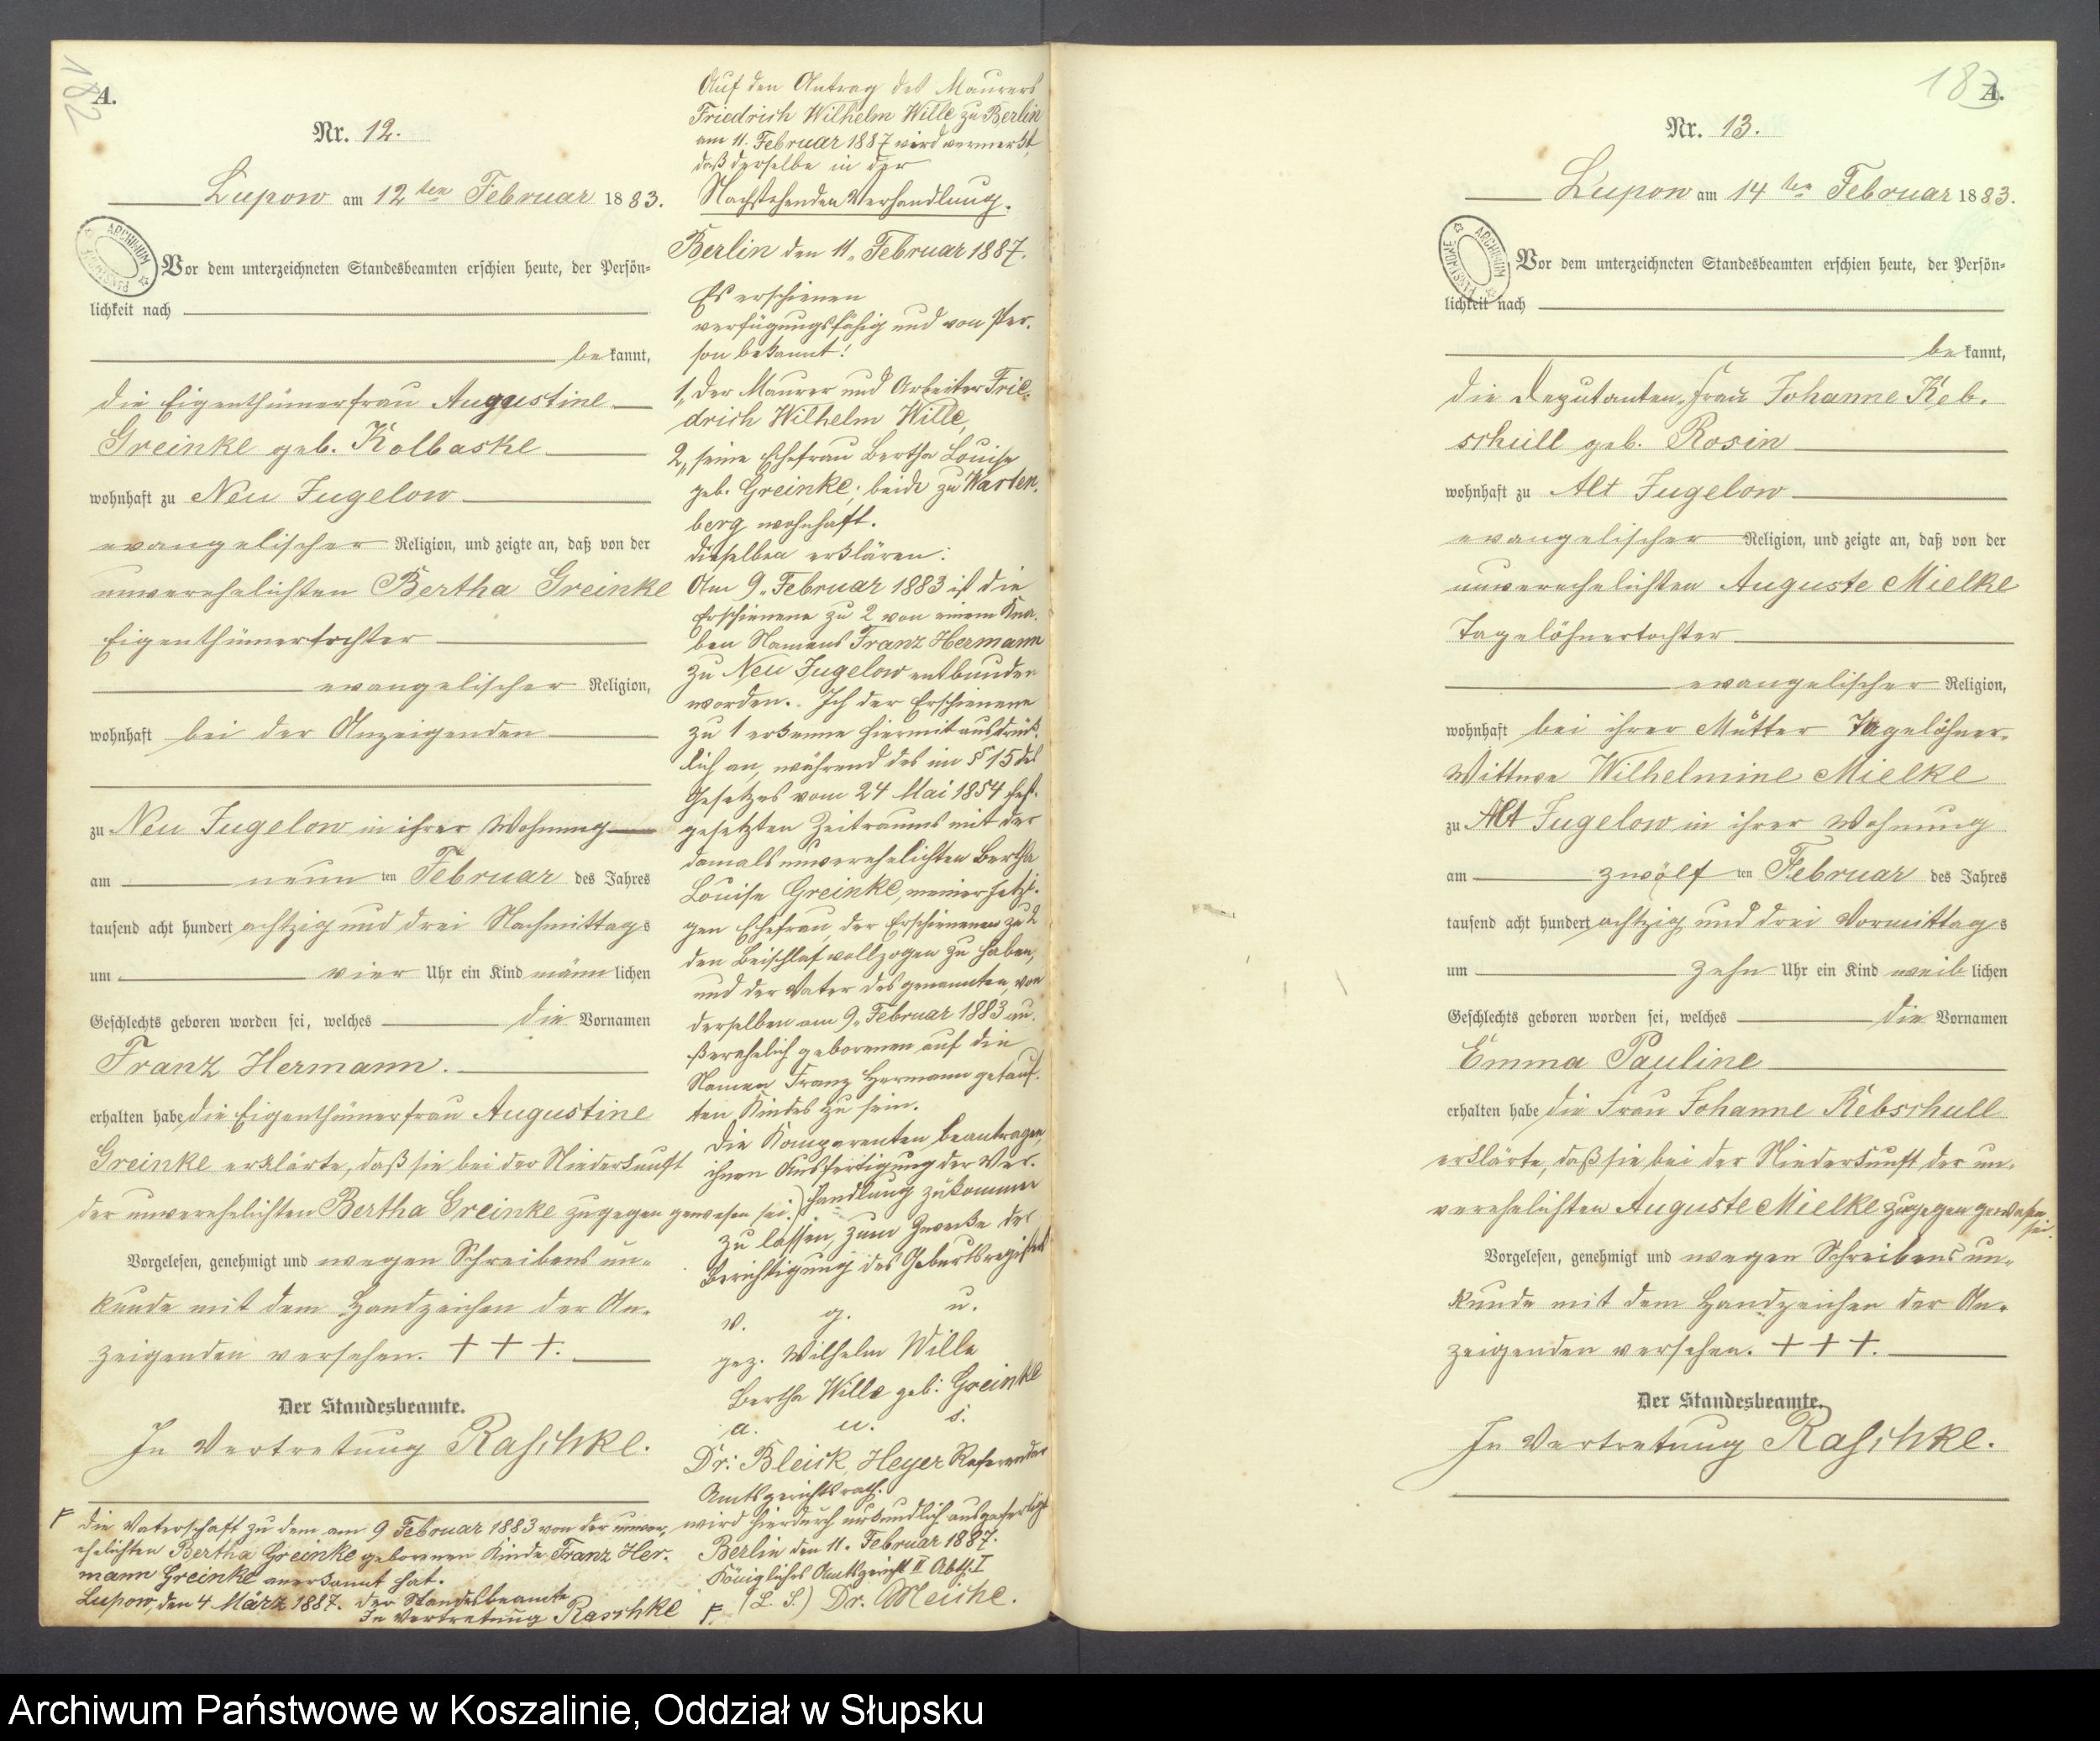 182
A.
Nr. 12.
Lupow am 12ten Februar 1883.
Vor dem unterzeichneten Standesbeamten erschien heute, der Persön-
lichkeit nach
bekannt,
die Eigenthümerfrau Augustine
Greinke geb. Kolbaske
wohnhaft zu Neu Jugelow
evangelischer Religion, und zeigte an, daß von der
unverehelichten Bertha Greinke
Eigenthümertochter
evangelischer Religion,
wohnhaft bei der Anzeigenden
zu Neu Jugelow in ihrer Wohnung
am neun ten Februar des Jahres
tausend acht hundert achtzig und drei Nachmittags
um vier Uhr ein Kind männlichen
Geschlechts geboren worden sei, welches die Vornamen
Franz Hermann.
erhalten habe die Eigenthümerfrau Augustine
Greinke erklärte, daß sie bei der Niederkunft
der unverehelichten Bertha Greinke zugegen gewesen sei.
Vorgelesen, genehmigt und wegen Schreibens un-
kunde mit dem Handzeichen der An-
zeigenden versehen. + + +.
Der Standesbeamte.
In Vertretung Raschke.
F die Vaterschaft zu dem am 9 Februar 1883 von der unver-
ehelichten Bertha Greinke geborenen Kinde Franz Her-
mann Greinke anerkannt hat.
Lupow, den 4 März 1887. Der Standesbeamte
In Vertretung Raschke
Auf den Antrag des Maurers
Friedrich Wilhelm Wille zu Berlin
am 11. Februar 1887 wird vermerkt,
daß derselbe in der
Nachstehenden Verhandlung.
Berlin den 11. Februar 1887.
Es erschienen
verfügungsfähig und von Per-
son bekannt!
1, der Maurer und Arbeiter Frie-
drich Wilhelm Wille,
2, seine Ehefrau Bertha Louise
geb. Greinke; beide zu Warten-
berg wohnhaft.
dieselben erklären:
Am 9. Februar 1883 ist die
Erschienene zu 2 von einem Kna-
ben Namens Franz Hermann
zu Neu Jugelow entbunden
worden. Ich der Erschienene
zu 1 erkenne hiermit ausdrück-
lich an, während des im § 15 des
Gesetzes vom 24 Mai 1854 fest-
gesetzten Zeitraums mit der
damals unverehelichten Bertha
Louise Greinke, meiner jetzi-
gen Ehefrau, der Erschienenen zu 2
den Beischlaf vollzogen zu haben,
und der Vater des genannten, von
derselben am 9. Februar 1883 au-
ßerehelich geborenen auf die
Namen Franz Hermann getauf-
ten Kindes zu sein.
Die Komparenten beantragen,
ihnen Ausfertigung der Ver-
handlung zukommen
zu lassen, zum Zwecke der
Berichtigung des Geburtsregisters
v. g. u.
gez. Wilhelm Wille
Bertha Wille geb: Greinke
a. u. s.
Dr: Bleick, Heyer Referendar
Amtsgerichtsrath.
wird hierdurch urkundlich ausgefertigt
Berlin den 11. Februar 1887.
Königliches Amtsgericht II Abth. I
F. (L. S.) Dr. Meiche.
183
A.
Nr. 13.
Lupow am 14ten Februar 1883.
Vor dem unterzeichneten Standesbeamten erschien heute, der Persön-
lichkeit nach
bekannt,
die Deputanten-Frau Johanne Keb-
schull geb. Rosin
wohnhaft zu Alt Jugelow
evangelischer Religion, und zeigte an, daß von der
unverehelichten Auguste Mielke
Tagelöhnertochter
evangelischer Religion,
wohnhaft bei ihrer Mutter Tagelöhner-
Wittwe Wilhelmine Mielke
zu Alt Jugelow in ihrer Wohnung
am zwölf ten Februar des Jahres
tausend acht hundert achtzig und drei Vormittags
um zehn Uhr ein Kind weiblichen
Geschlechts geboren worden sei, welches die Vornamen
Emma Pauline
erhalten habe die Frau Johanne Kebschull
erklärte, daß sie bei der Niederkunft der un-
verehelichten Auguste Mielke zugegen gewesen
sei.
Vorgelesen, genehmigt und wegen Schreibens un-
kunde mit dem Handzeichen der An-
zeigenden versehen. + + +.
Der Standesbeamte.
In Vertretung Raschke.
Archiwum Państwowe w Koszalinie, Oddział w Słupsku